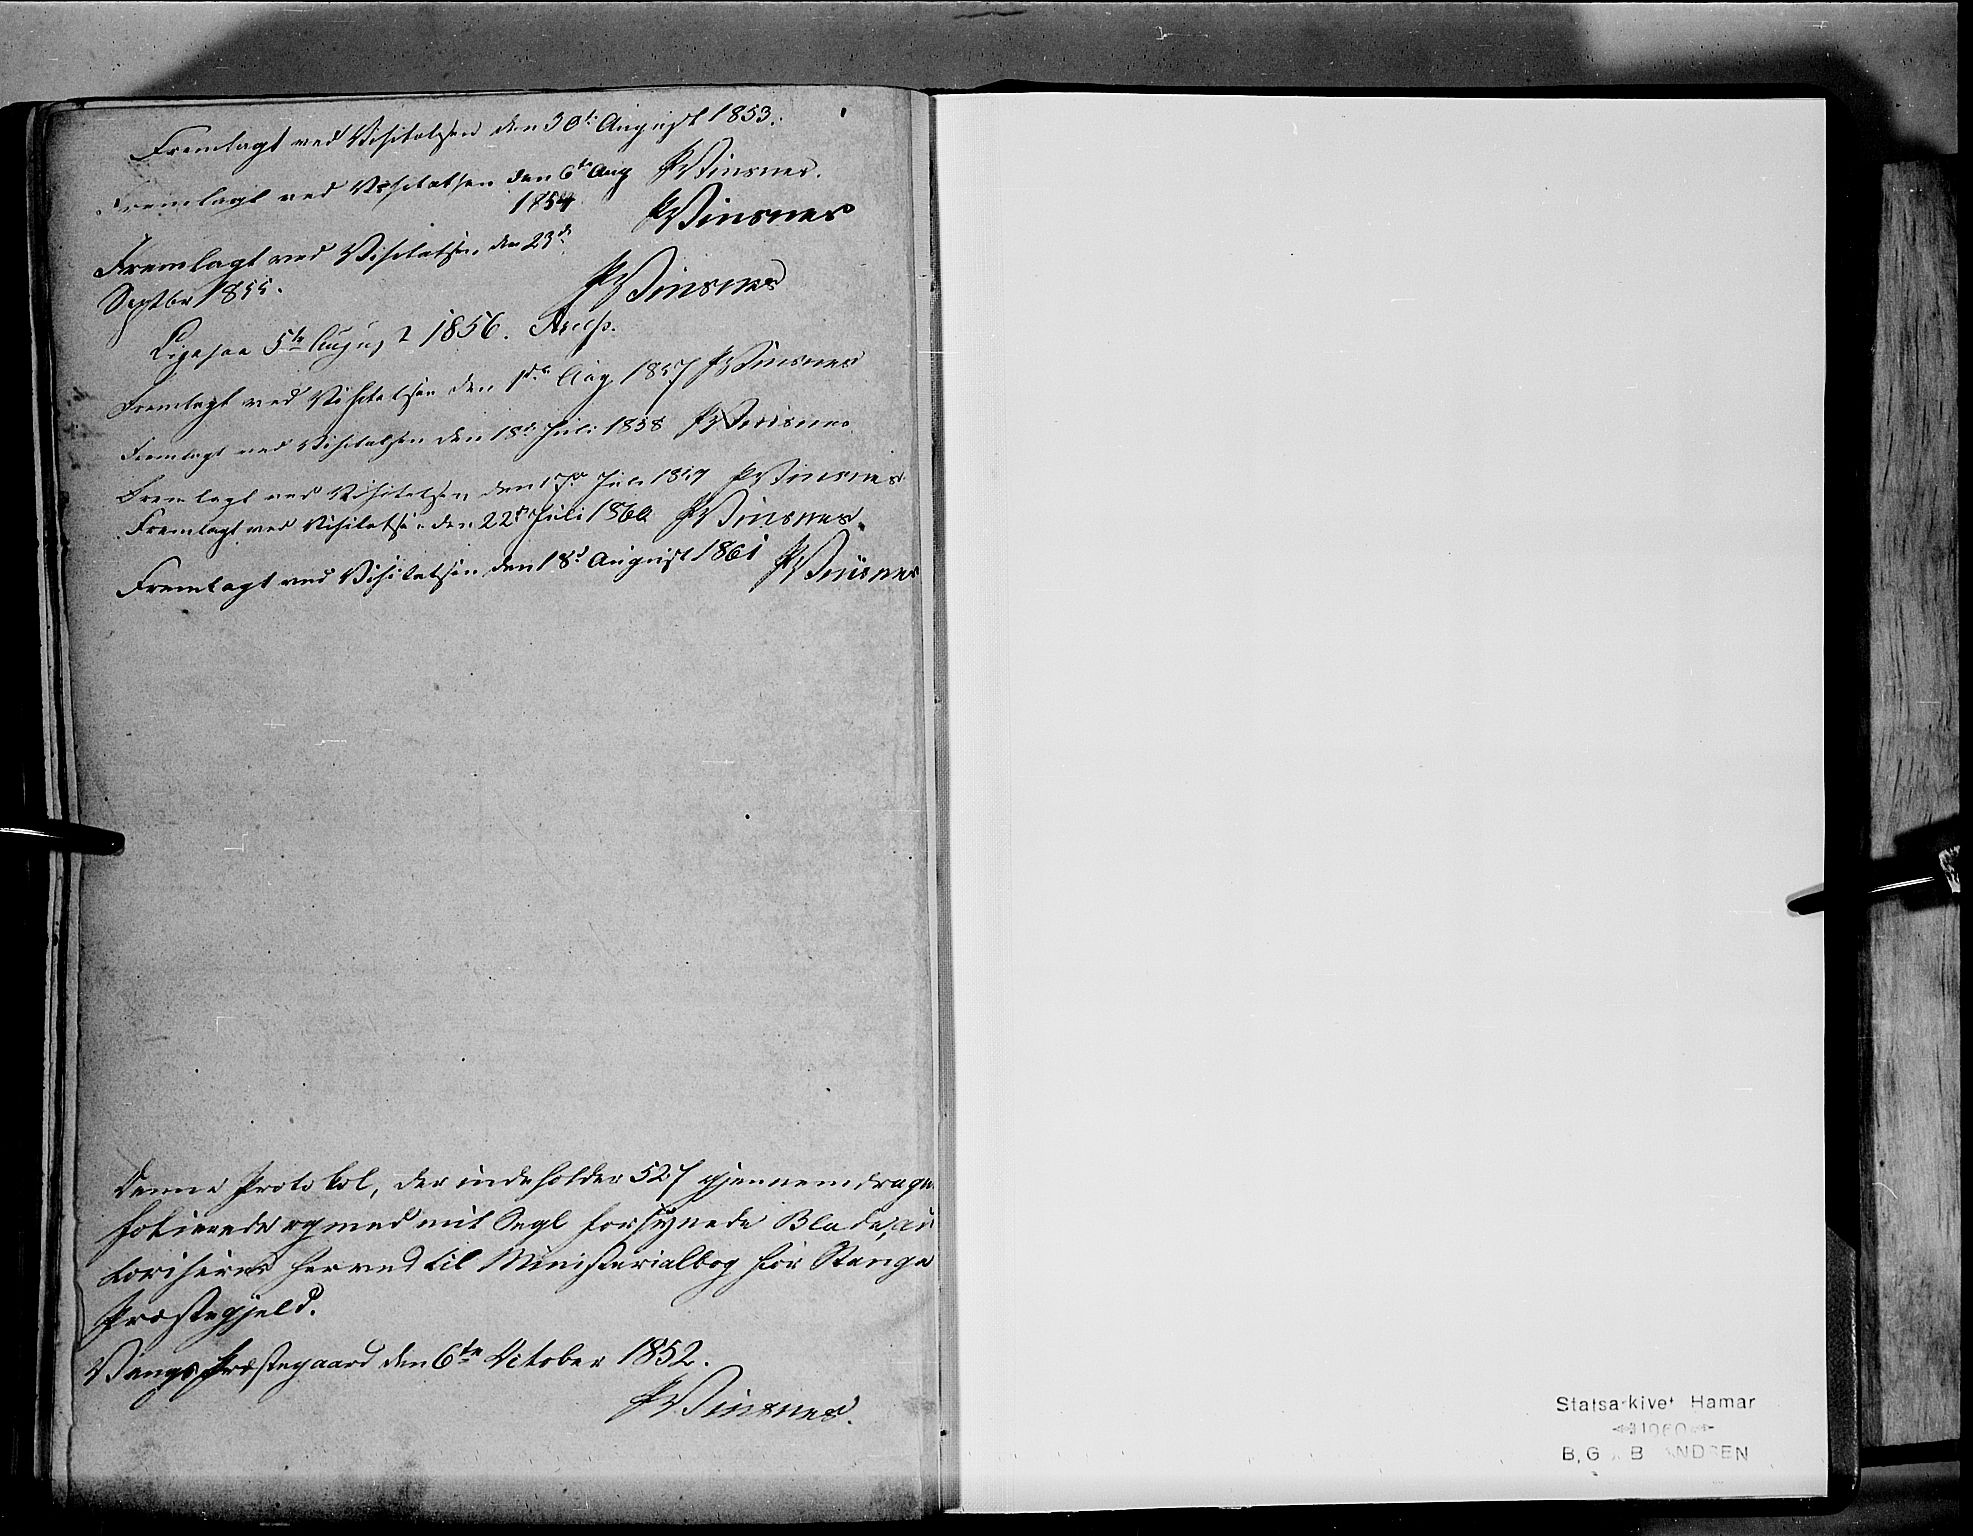 Fremlagt ved Visitatsen den 30te August 1853.
PVinsnes.
Fremlagt ved Visitatsen den 6te Aug
1854
PVinsnes
Fremlagt ved Visitatsen den 23de
Septbr 1855.
PVinsnes
Ligesaa 5te August 1856.
Fremlagt ved Visitatsen den 1ste Aug 1857 PVinsnes
Fremlagt ved Visitatsen den 18de Juli 1858 PVinsnes.
Fremlagt ved Visitatsen den 17de Juli 1859 PVinsnes
Fremlagt ved Visitatsen den 22de Juli 1860 PVinsnes.
Fremlagt ved Visitatsen den 18de August 1861 PVinsnes
Denne Protokol, der indeholder 527 gjennemdragne
folierede og med mit Segl forsynede Blade, au
toriseres herved til Ministerialbog for Stange
Præstegjeld.
Vangs Præstegaard den 6te October 1852.
PVinsnes.
Statsarkivet Hamar
B,G